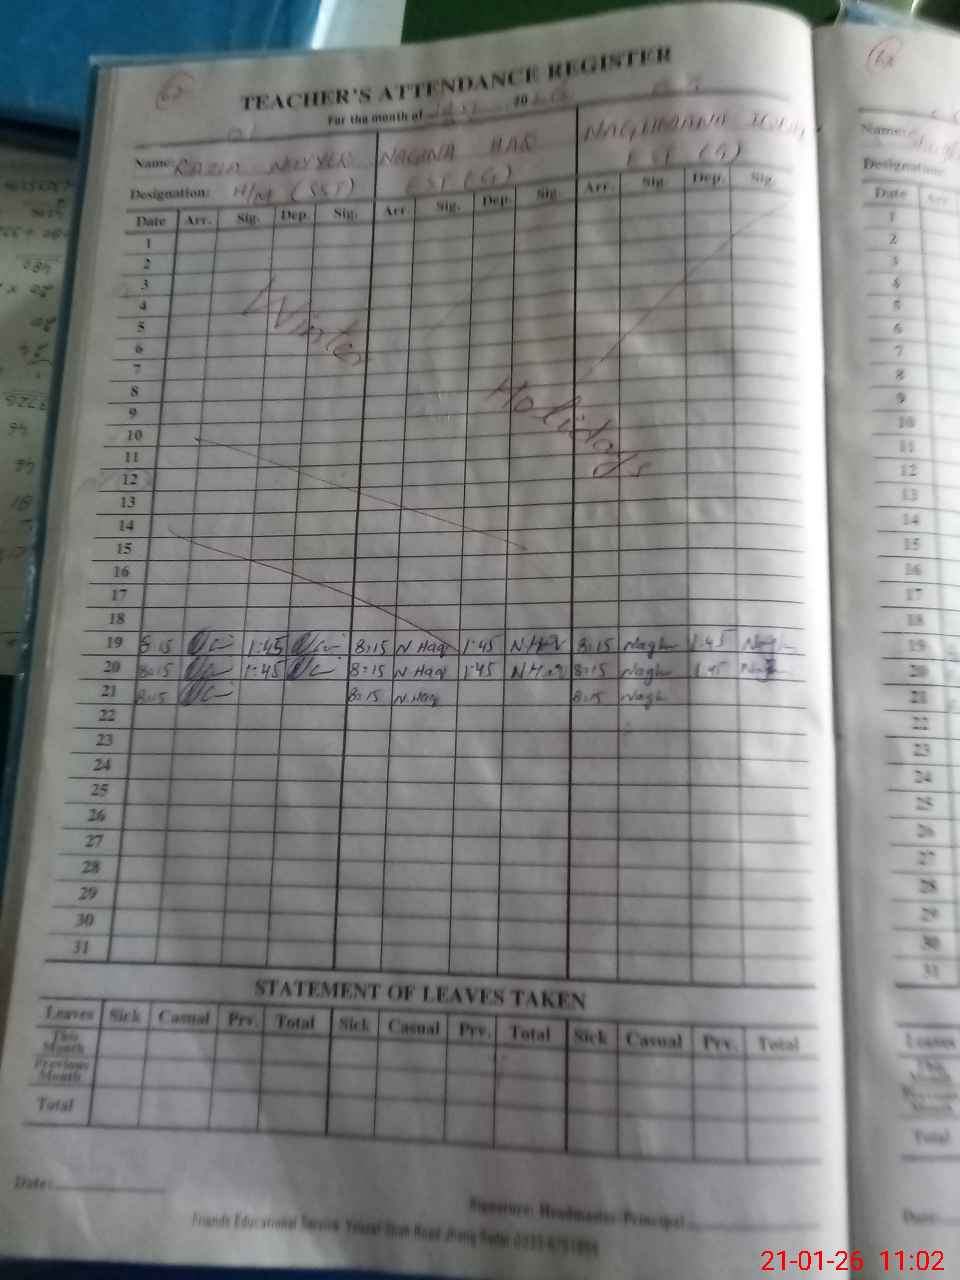 TEACHER'S ATTENDANCE REGISTER
For the month of 20
Name: RAZIA NAYYER NAGINA HAQ NAGHMANA
Designation: H/M (SST) EST (G) EST (G)
Date Arr. Sig. Dep. Sig. Arr. Sig. Dep. Sig. Arr. Sig. Dep. Sig.
1
2
3
4
5
6
7
8
9
10
11
12
13
14
15
16
17
18
Winter
Holidays
19 8:15 1:45 8:15 N Haq 1:45 N Haq 8:15 Nagh 1:45 Nagh
20 8:15 1:45 8:15 N Haq 1:45 N Haq 8:15 Nagh 1:45 Nagh
21 8:15 8:15 N.Haq 8:15 Nagh
22
23
24
25
26
27
28
29
30
31
STATEMENT OF LEAVES TAKEN
Leaves Sick Casual Prv. Total Sick Casual Prv. Total Sick Casual Prv. Total
This Month
Previous Month
Total
Date:
Signature: Headmaster/Principal
Friends Educational Service Yousaf Shah Road Jhang Sadar
Name:
Designation:
Date Arr.
1
2
3
4
5
6
7
8
9
10
11
12
13
14
15
16
17
18
19
20
21
22
23
24
25
26
27
28
29
30
31
Leaves
This
Previous
Total
Date:
21-01-26 11:02